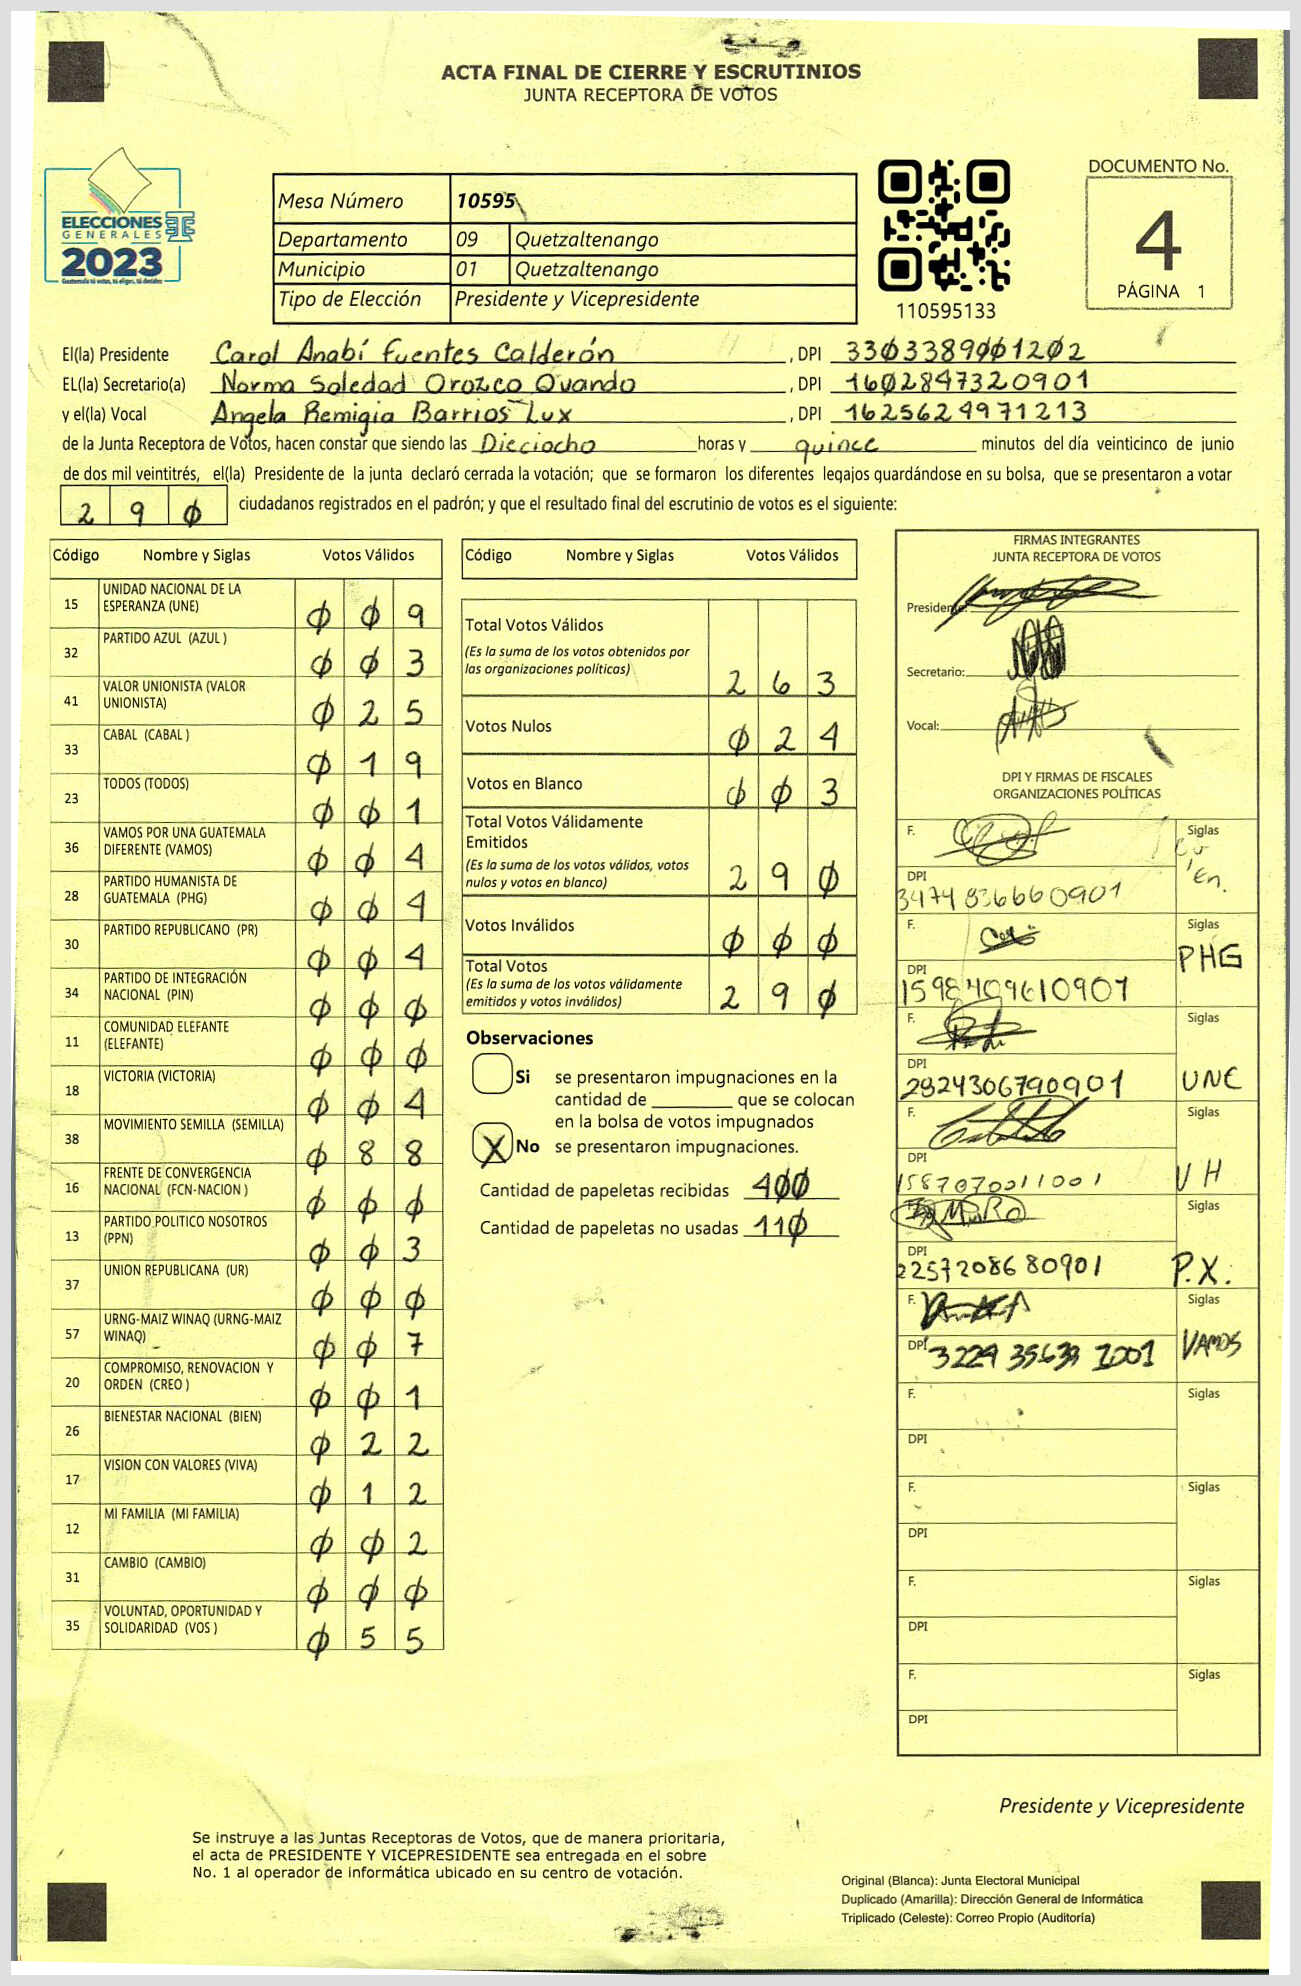 ACTA FINAL DE CIERRE Y ESCRUTINIOS
JUNTA RECEPTORA DE VOTOS
ELECCIONES
GENERALES
2023
Guatemala tú votas, tú eliges, tú decides
Mesa Número 10595
Departamento 09 Quetzaltenango
Municipio 01 Quetzaltenango
Tipo de Elección Presidente y Vicepresidente
110595133
DOCUMENTO No.
4
PÁGINA 1
El(la) Presidente Carol Anabí Fuentes Calderón, DPI 3303389001202
EL(la) Secretario(a) Norma Soledad Orozco Ovando, DPI 1602847320901
y el(la) Vocal Angela Remigia Barrios Lux, DPI 1625624971213
de la Junta Receptora de Votos, hacen constar que siendo las Dieciocho horas y quince minutos del día veinticinco de junio
de dos mil veintitrés, el(la) Presidente de la junta declaró cerrada la votación; que se formaron los diferentes legajos guardándose en su bolsa, que se presentaron a votar
290 ciudadanos registrados en el padrón; y que el resultado final del escrutinio de votos es el siguiente:
Código Nombre y Siglas Votos Válidos
15 UNIDAD NACIONAL DE LA
ESPERANZA (UNE) 0 0 9
32 PARTIDO AZUL (AZUL ) 0 0 3
41 VALOR UNIONISTA (VALOR
UNIONISTA) 0 2 5
33 CABAL (CABAL ) 0 1 9
23 TODOS (TODOS) 0 0 1
36 VAMOS POR UNA GUATEMALA
DIFERENTE (VAMOS) 0 0 4
28 PARTIDO HUMANISTA DE
GUATEMALA (PHG) 0 0 4
30 PARTIDO REPUBLICANO (PR) 0 0 4
34 PARTIDO DE INTEGRACIÓN
NACIONAL (PIN) 0 0 0
11 COMUNIDAD ELEFANTE
(ELEFANTE) 0 0 0
18 VICTORIA (VICTORIA) 0 0 4
38 MOVIMIENTO SEMILLA (SEMILLA) 0 8 8
16 FRENTE DE CONVERGENCIA
NACIONAL (FCN-NACION ) 0 0 0
13 PARTIDO POLITICO NOSOTROS
(PPN) 0 0 3
37 UNION REPUBLICANA (UR) 0 0 0
57 URNG-MAIZ WINAQ (URNG-MAIZ
WINAQ) 0 0 7
20 COMPROMISO, RENOVACION Y
ORDEN (CREO ) 0 0 1
26 BIENESTAR NACIONAL (BIEN) 0 2 2
17 VISION CON VALORES (VIVA) 0 1 2
12 MI FAMILIA (MI FAMILIA) 0 0 2
31 CAMBIO (CAMBIO) 0 0 0
35 VOLUNTAD, OPORTUNIDAD Y
SOLIDARIDAD (VOS ) 0 5 5
Código Nombre y Siglas Votos Válidos
Total Votos Válidos
(Es la suma de los votos obtenidos por
las organizaciones políticas) 2 6 3
Votos Nulos 0 2 4
Votos en Blanco 0 0 3
Total Votos Válidamente
Emitidos
(Es la suma de los votos válidos, votos
nulos y votos en blanco) 2 9 0
Votos Inválidos 0 0 0
Total Votos
(Es la suma de los votos válidamente
emitidos y votos inválidos) 2 9 0
Observaciones
Si se presentaron impugnaciones en la
cantidad de ________ que se colocan
en la bolsa de votos impugnados
X No se presentaron impugnaciones.
Cantidad de papeletas recibidas 400
Cantidad de papeletas no usadas 110
FIRMAS INTEGRANTES
JUNTA RECEPTORA DE VOTOS
Presidente:
Secretario:
Vocal:
DPI Y FIRMAS DE FISCALES
ORGANIZACIONES POLÍTICAS
F. Siglas
DPI
3474836660901
F. Siglas
PHG
DPI
1598409610901
F. Siglas
DPI
2924306790901 UNE
F. Siglas
DPI
1587070011001 VH
F. Siglas
DPI
2257208680901 P.X.
F. Siglas
VAMOS
DPI 3229 35639 1001
F. Siglas
DPI
F. Siglas
DPI
F. Siglas
DPI
F. Siglas
DPI
Presidente y Vicepresidente
Se instruye a las Juntas Receptoras de Votos, que de manera prioritaria,
el acta de PRESIDENTE Y VICEPRESIDENTE sea entregada en el sobre
No. 1 al operador de informática ubicado en su centro de votación.
Original (Blanca): Junta Electoral Municipal
Duplicado (Amarilla): Dirección General de Informática
Triplicado (Celeste): Correo Propio (Auditoría)